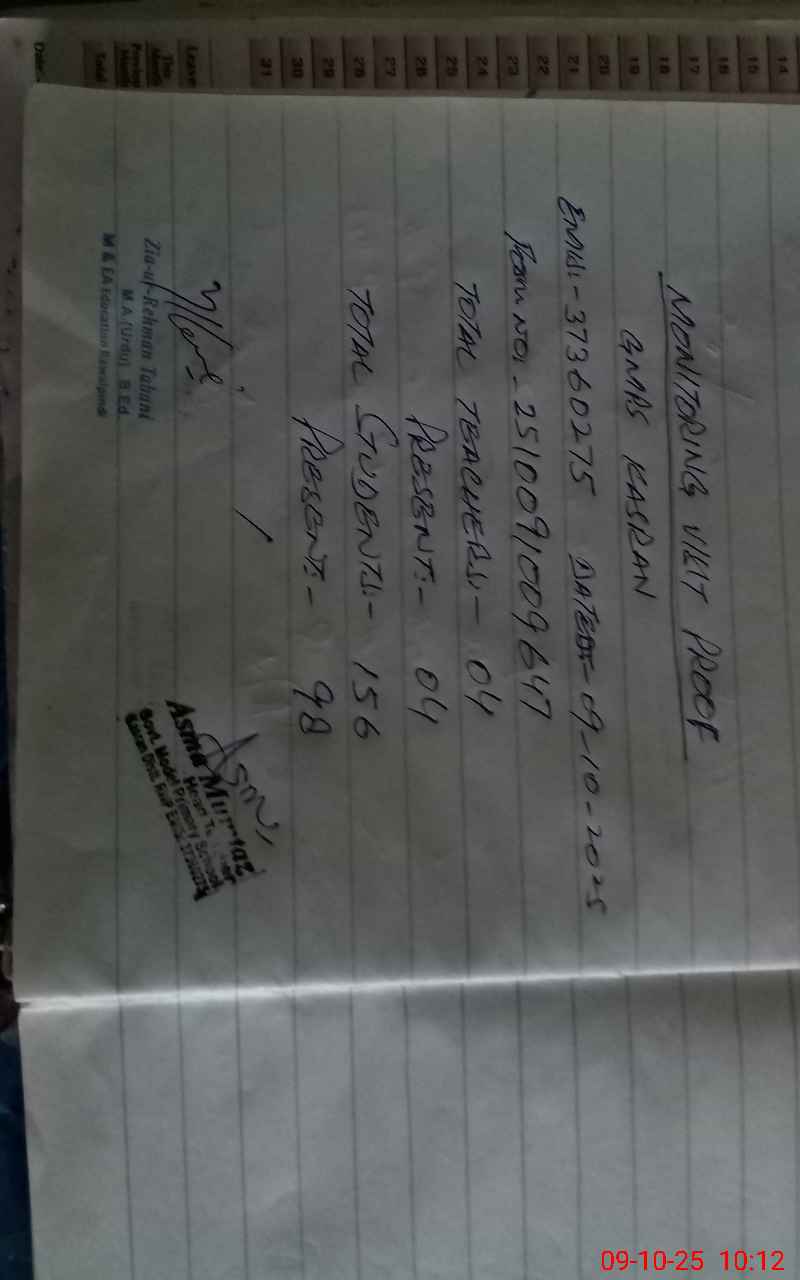 MONITORING VISIT PROOF
GMPS KASRAN
EMIS:- 37360275 DATED:- 09-10-2025
Form No:- 2510091009647
TOTAL TEACHERS:- 04
PRESENT:- 04
TOTAL STUDENTS:- 156
PRESENT:- 98
Zia-ur-Rehman Tabani
M.A.(Urdu) B.Ed.
M & EA Education Rawalpindi
Asma
Asma Mumtaz
Govt. Model Primary School
14
15
16
17
18
19
20
21
22
23
24
25
26
27
28
29
30
31
Leave
This Month
Previous Month
Total
Date
09-10-25 10:12